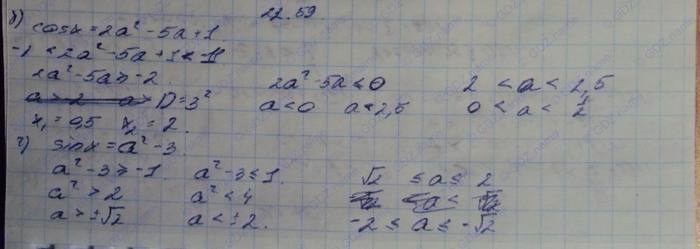 22.59
б) cosx = 2a² - 5a + 1
-1 < 2a² - 5a + 1 < 1
2a² - 5a ≥ -2 2a² - 5a ≤ 0 2 < a < 2,5
D = 3² a < 0 a < 2,5 0 < a < 1/2
x₁ = 0,5 x₂ = 2.
г) sinx = a² - 3
a² - 3 ≥ -1 a² - 3 ≤ 1. √2 ≤ a ≤ 2
a² > 2 a² < 4
a > ±√2 a < ±2. -2 ≤ a ≤ -√2